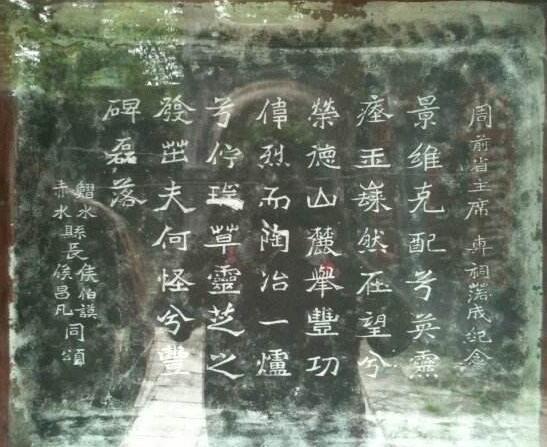 周前省主席 專祠落成紀念
景維克配兮英靈
瘞玉巋然在望兮
榮德山麓舉豐功
偉烈而陶冶一爐
兮佇草靈芝之
發茁夫何怪兮豐
碑磊落
鰼水
赤水
縣長
侯伯謨
侯昌凡
同頌